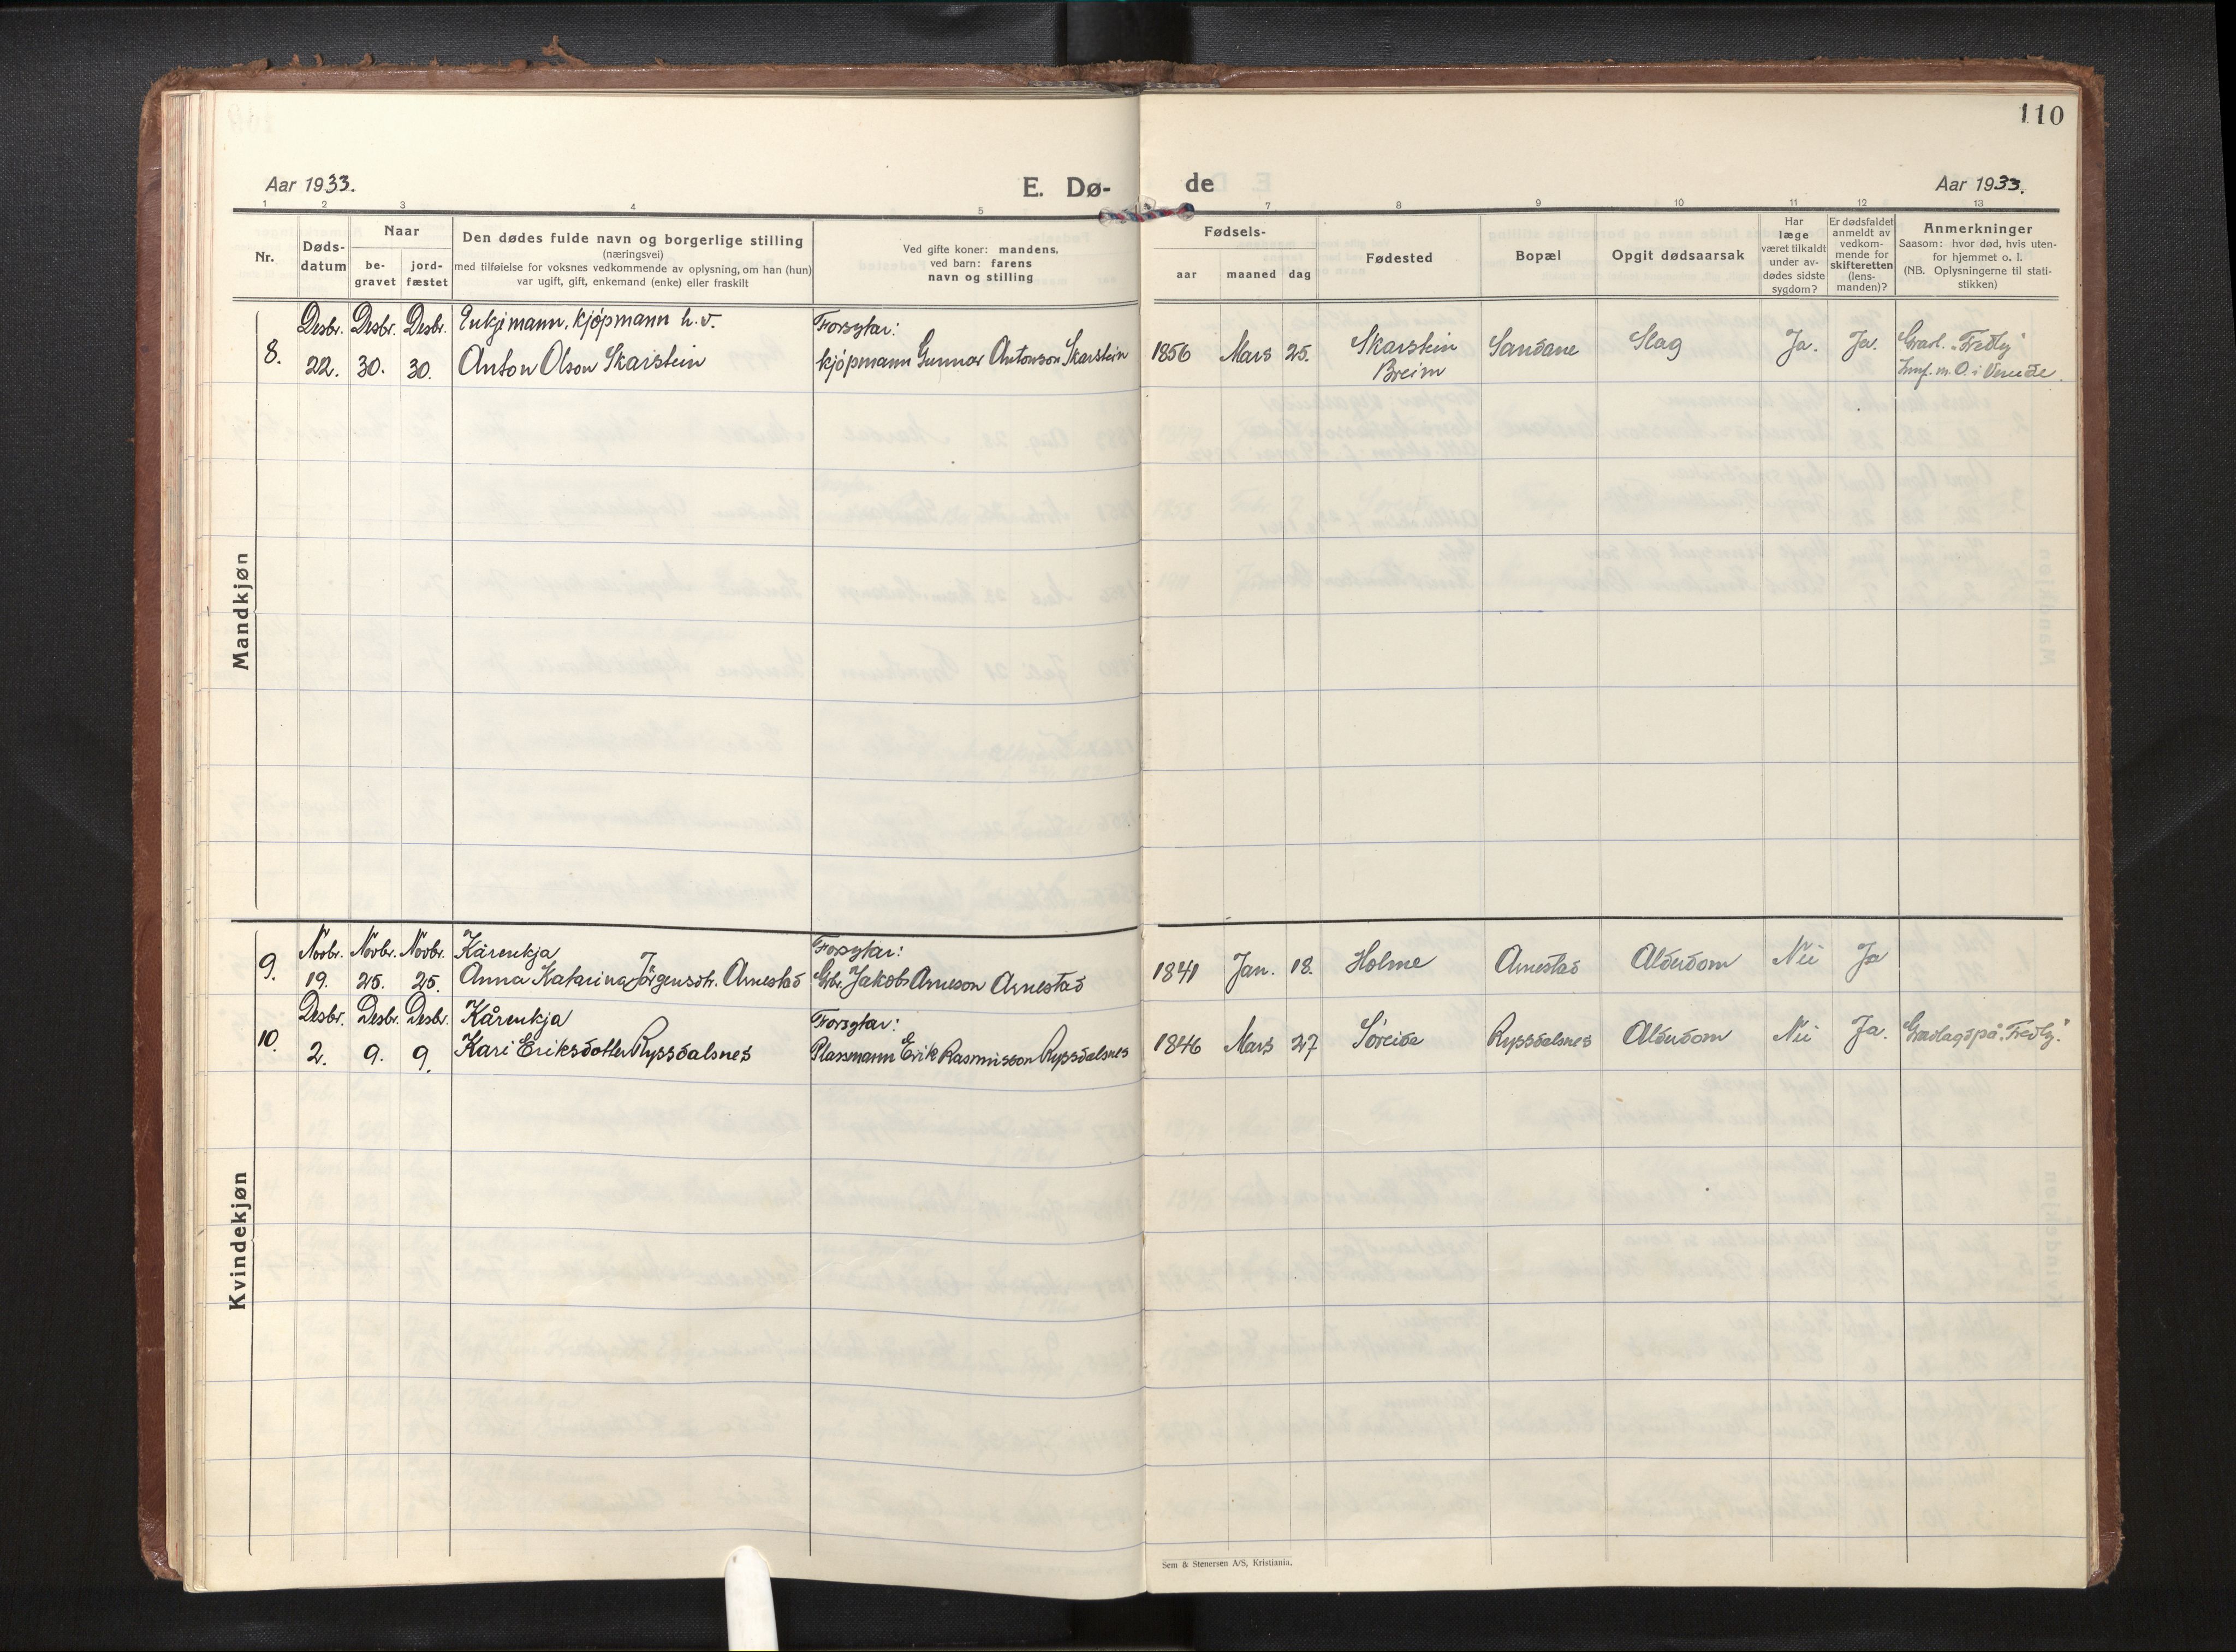 110
Aar 1933.
E. Dø-
de
Aar 1933.
1 2 3 4 5 7 8 9 10 11 12 13
Nr.
Døds-
datum
Naar
be-
gravet
jord-
fæstet
Den dødes fulde navn og borgerlige stilling
(næringsvei)
med tilføielse for voksnes vedkommende av oplysning, om han (hun)
var ugift, gift, enkemand (enke) eller fraskilt
Ved gifte koner: mandens.
ved barn: farens
navn og stilling
Fødsels-
aar maaned dag
Fødested
Bopæl
Opgit dødsaarsak
Har
læge
været tilkaldt
under av-
dødes sidste
sygdom?
Er dødsfaldet
anmeldt av
vedkom-
mende for
skifteretten
(lens-
manden)?
Anmerkninger
Saasom: hvor død, hvis uten-
for hjemmet o. l.
(NB. Oplysningerne til stati-
stikken)
Mandkjøn
Desbr. Desbr. Desbr. Enkjemann, kjøpmann h.v. Forsytar:
8. 22. 30. 30. Anton Olson Skarstein kjøpmann Gunnar Antonson Skarstein 1856 Mars 25. Skarstein Sandane Slag Ja. Ja. Gravl. "Fredly"
Breim
Kvindekjøn
Novbr. Novbr. Novbr. Kårenkja Forsytar:
9. 19. 25. 25. Anna Katarina Jörgensdtr. Arnestad Gbr. Jakob Arneson Arnestad 1841 Jan. 18. Holme Arnestad Alderdom Nei Ja
Desbr. Desbr. Desbr. Kårenkja Forsytar:
10. 2. 9. 9. Kari Eriksdotter Ryssdalsnes Plassmann Erik Rasmusson Ryssdalsnes 1846 Mars 27 Søreide Ryssdalsnes Alderdom Nei Ja. Gravlagd på "Fredly."
Sem & Stenersen A/S, Kristiania.